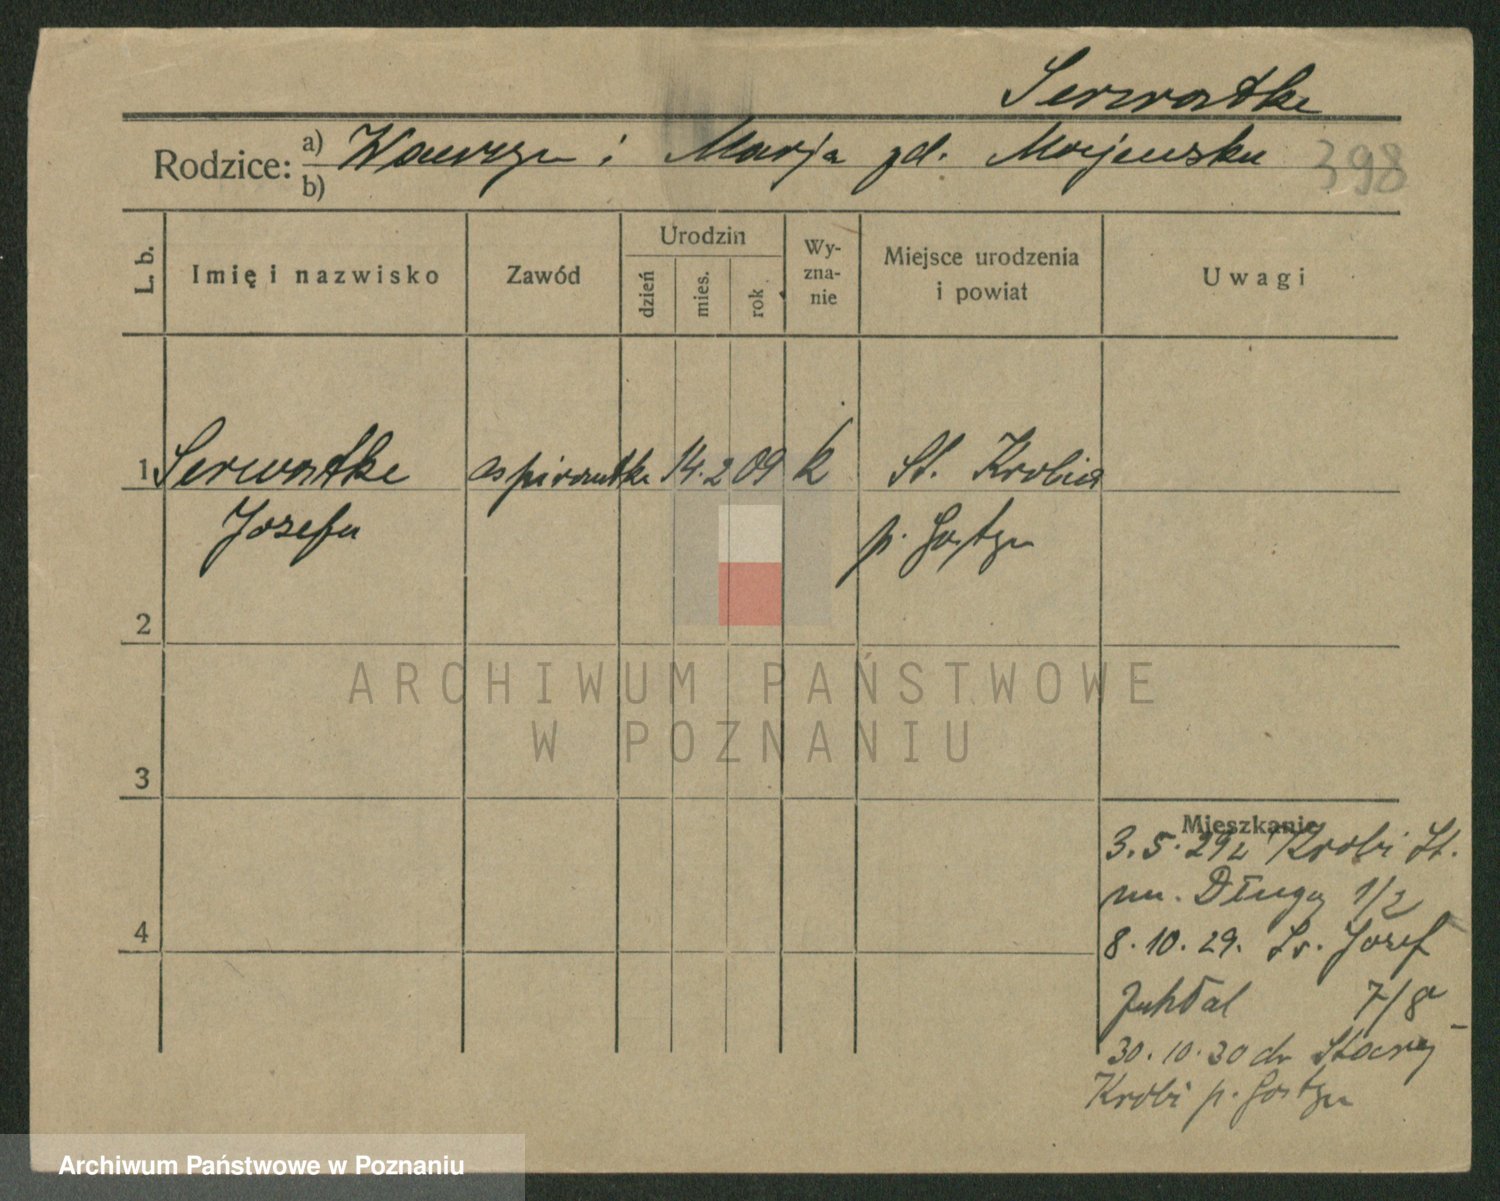 Serwatke
Rodzice: a) Wawrzyn i Marja zd. Majewska 398
b)
L. b.
Imię i nazwisko
Zawód
Urodzin
dzień
mies.
rok
Wy-
zna-
nie
Miejsce urodzenia
i powiat
Uwagi
1 Serwatke aspirantke 14. 2 09 k St. Krobia
Jozefa p. Gostyn
2
ARCHIWUM PAŃSTWOWE
W POZNANIU
3
Mieszkanie
3. 5. 29 z Krobi St.
Długa 1/2
4
8. 10. 29. Św. Józef
7/8
30. 10. 30 do Starej
Krobi p. Gostyn
Archiwum Państwowe w Poznaniu